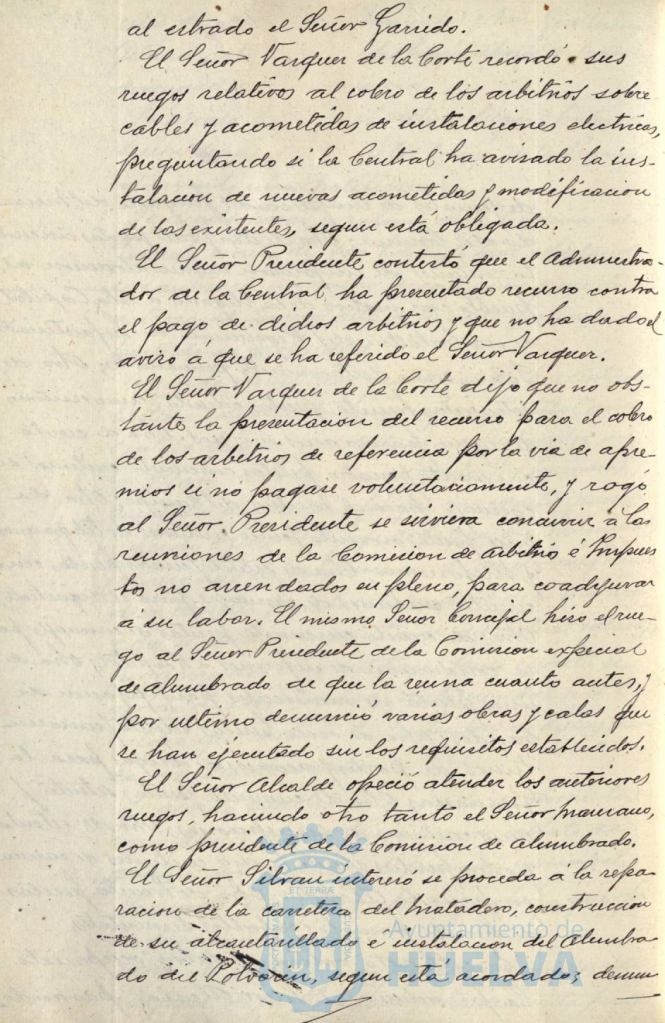 al estrado el Señor Garrido.
El Señor Vazquez de la Corte recordó sus
ruegos relativos al cobro de los arbitrios sobre
cables y acometidas de instalaciones electricas,
preguntando si la Central ha avisado la ins-
talacion de nuevas acometidas y modificacion
de las existentes, segun está obligada.
El Señor Presidente contestó que el Administra-
dor de la Central ha presentado recurso contra
el pago de dichos arbitrios y que no ha dado el
aviso á que se ha referido el Señor Vazquez.
El Señor Vazquez de la Corte dijo que no obs-
tante la presentacion del recurso para el cobro
de los arbitrios de referencia por la via de apre-
mios si no pagase voluntariamente, y rogó
al Señor Presidente se sirviera concurrir á las
reuniones de la Comision de Arbitrio é Impues
tos no arrendados en pleno, para coadyuvar
á su labor. El mismo Señor Concejal hizo el rue-
go al Señor Presidente de la Comision especial
de alumbrado de que la reuna cuanto antes, y
por ultimo denunció varias obras y calas que
se han ejecutado sin los requisitos establecidos.
El Señor Alcalde ofreció atender los anteriores
ruegos, haciendo otro tanto el Señor Manzano,
como presidente de la Comision de Alumbrado.
El Señor Silvan interesó se proceda á la repa-
racion de la carretera del Matadero, construccion
de su alcantarillado é instalacion del Alumbra
do del Polvorin, segun está acordado; denun
Ayuntamiento de
HUELVA